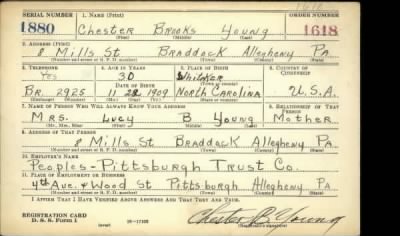 1618
SERIAL NUMBER 1. NAME (Print) ORDER NUMBER
1880 Chester Brooks Young 1618
(First) (Middle) (Last)
2. ADDRESS (Print)
8 Mills St. Braddock Allegheny Pa.
(Number and street or R. F. D. number) (Town) (County) (State)
3. TELEPHONE 4. AGE IN YEARS 5. PLACE OF BIRTH 6. COUNTRY OF CITIZENSHIP
Yes 30 Whitaker
DATE OF BIRTH (Town or county)
Br. 2925 11 28 1909 North Carolina U.S.A.
(Exchange) (Number) (Mo.) (Day) (Yr.) (State or country)
7. NAME OF PERSON WHO WILL ALWAYS KNOW YOUR ADDRESS 8. RELATIONSHIP OF THAT PERSON
Mrs. Lucy B Young Mother
(Mr., Mrs., Miss) (First) (Middle) (Last)
9. ADDRESS OF THAT PERSON
8 Mills St. Braddock Allegheny Pa.
(Number and street or R. F. D. number) (Town) (County) (State)
10. EMPLOYER'S NAME
Peoples-Pittsburgh Trust Co.
11. PLACE OF EMPLOYMENT OR BUSINESS
4th Ave. & Wood St Pittsburgh Allegheny Pa.
(Number and street or R. F. D. number) (Town) (County) (State)
I AFFIRM THAT I HAVE VERIFIED ABOVE ANSWERS AND THAT THEY ARE TRUE.
REGISTRATION CARD
D. S. S. Form 1 (over) Chester B. Young